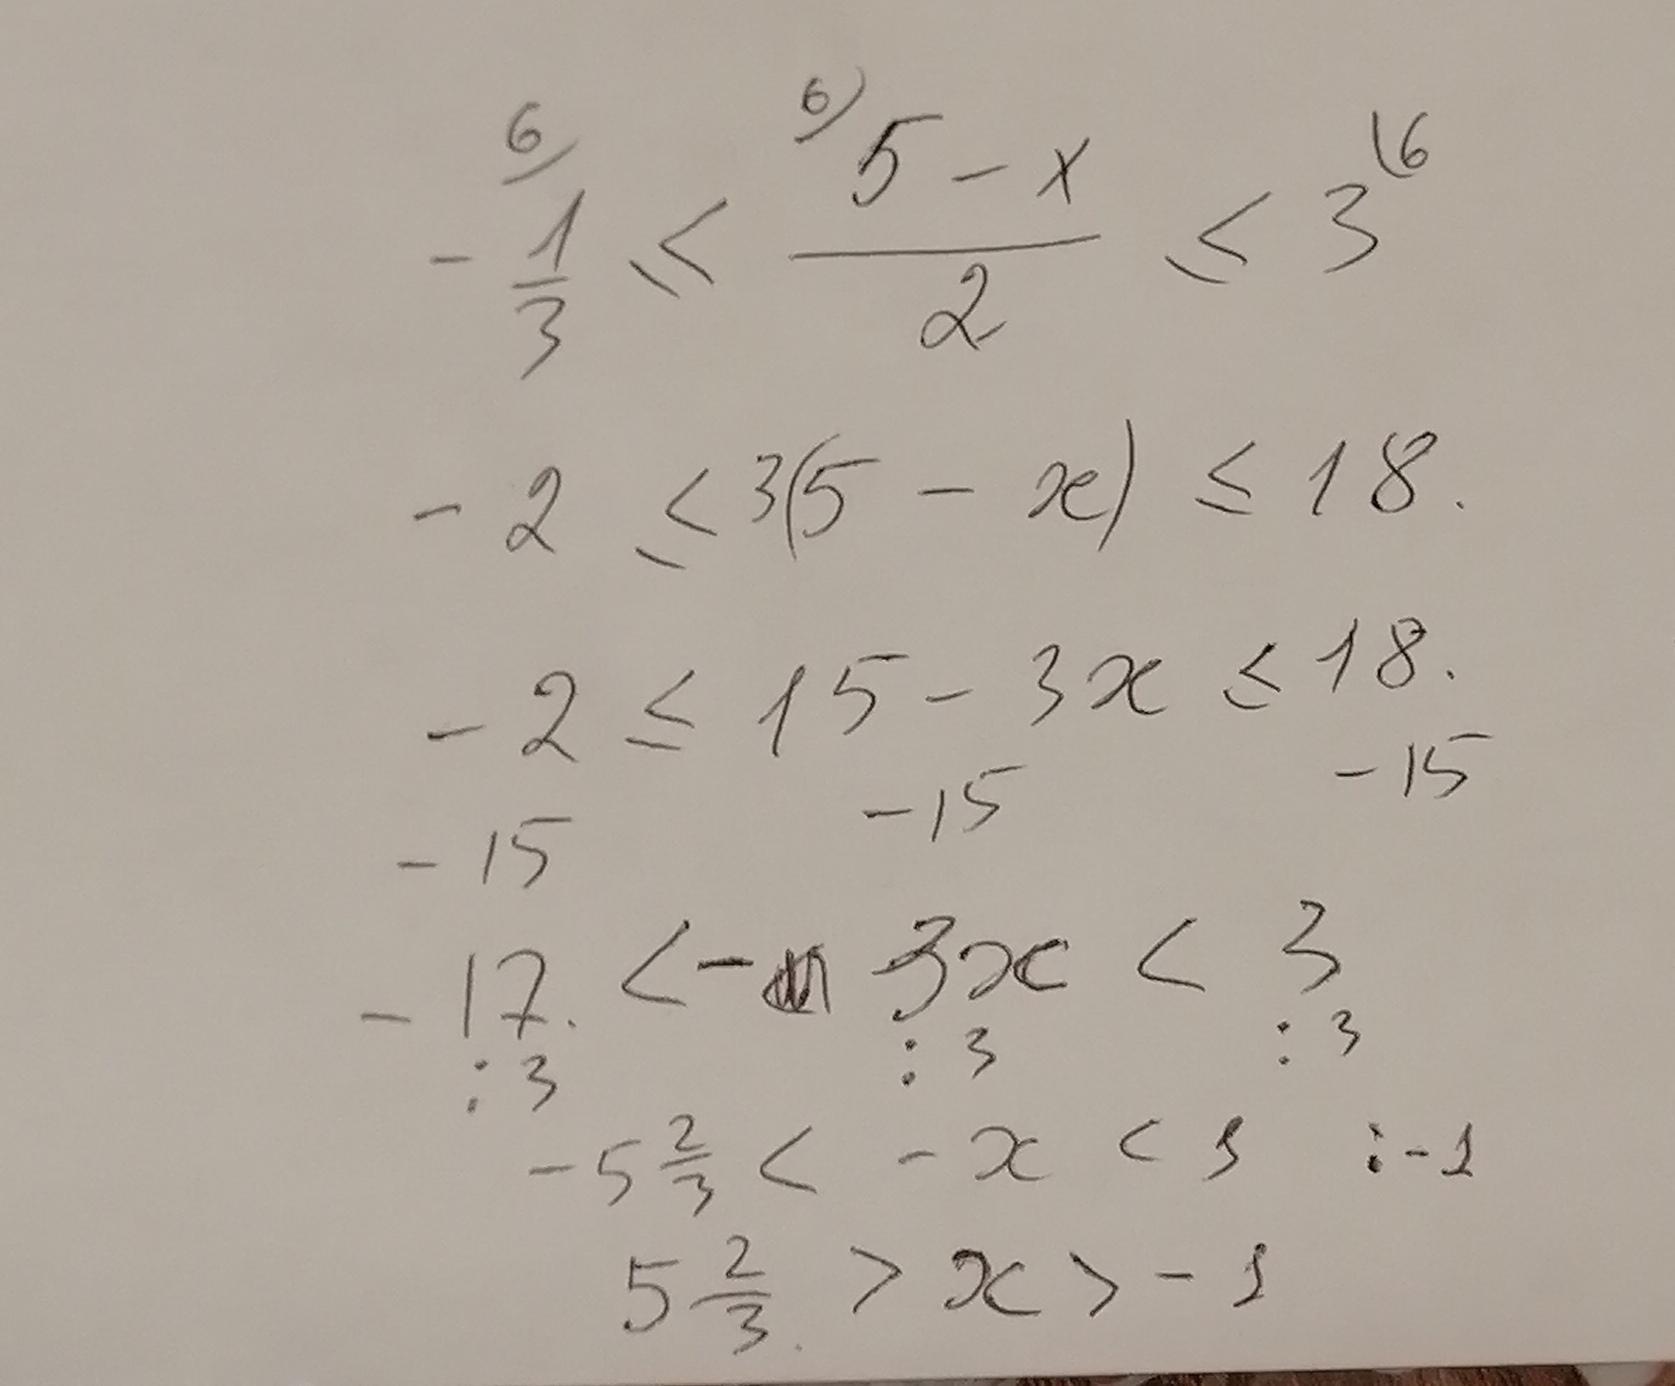 6) 6) (6
-1/3 ≤ (5-x)/2 ≤ 3
-2 ≤ 3(5 - x) ≤ 18.
-2 ≤ 15 - 3x ≤ 18.
-15 -15 -15
-17. < - 3x < 3
:3 :3 :3
-5 2/3 < -x < 1 :-1
5 2/3. > x > -1